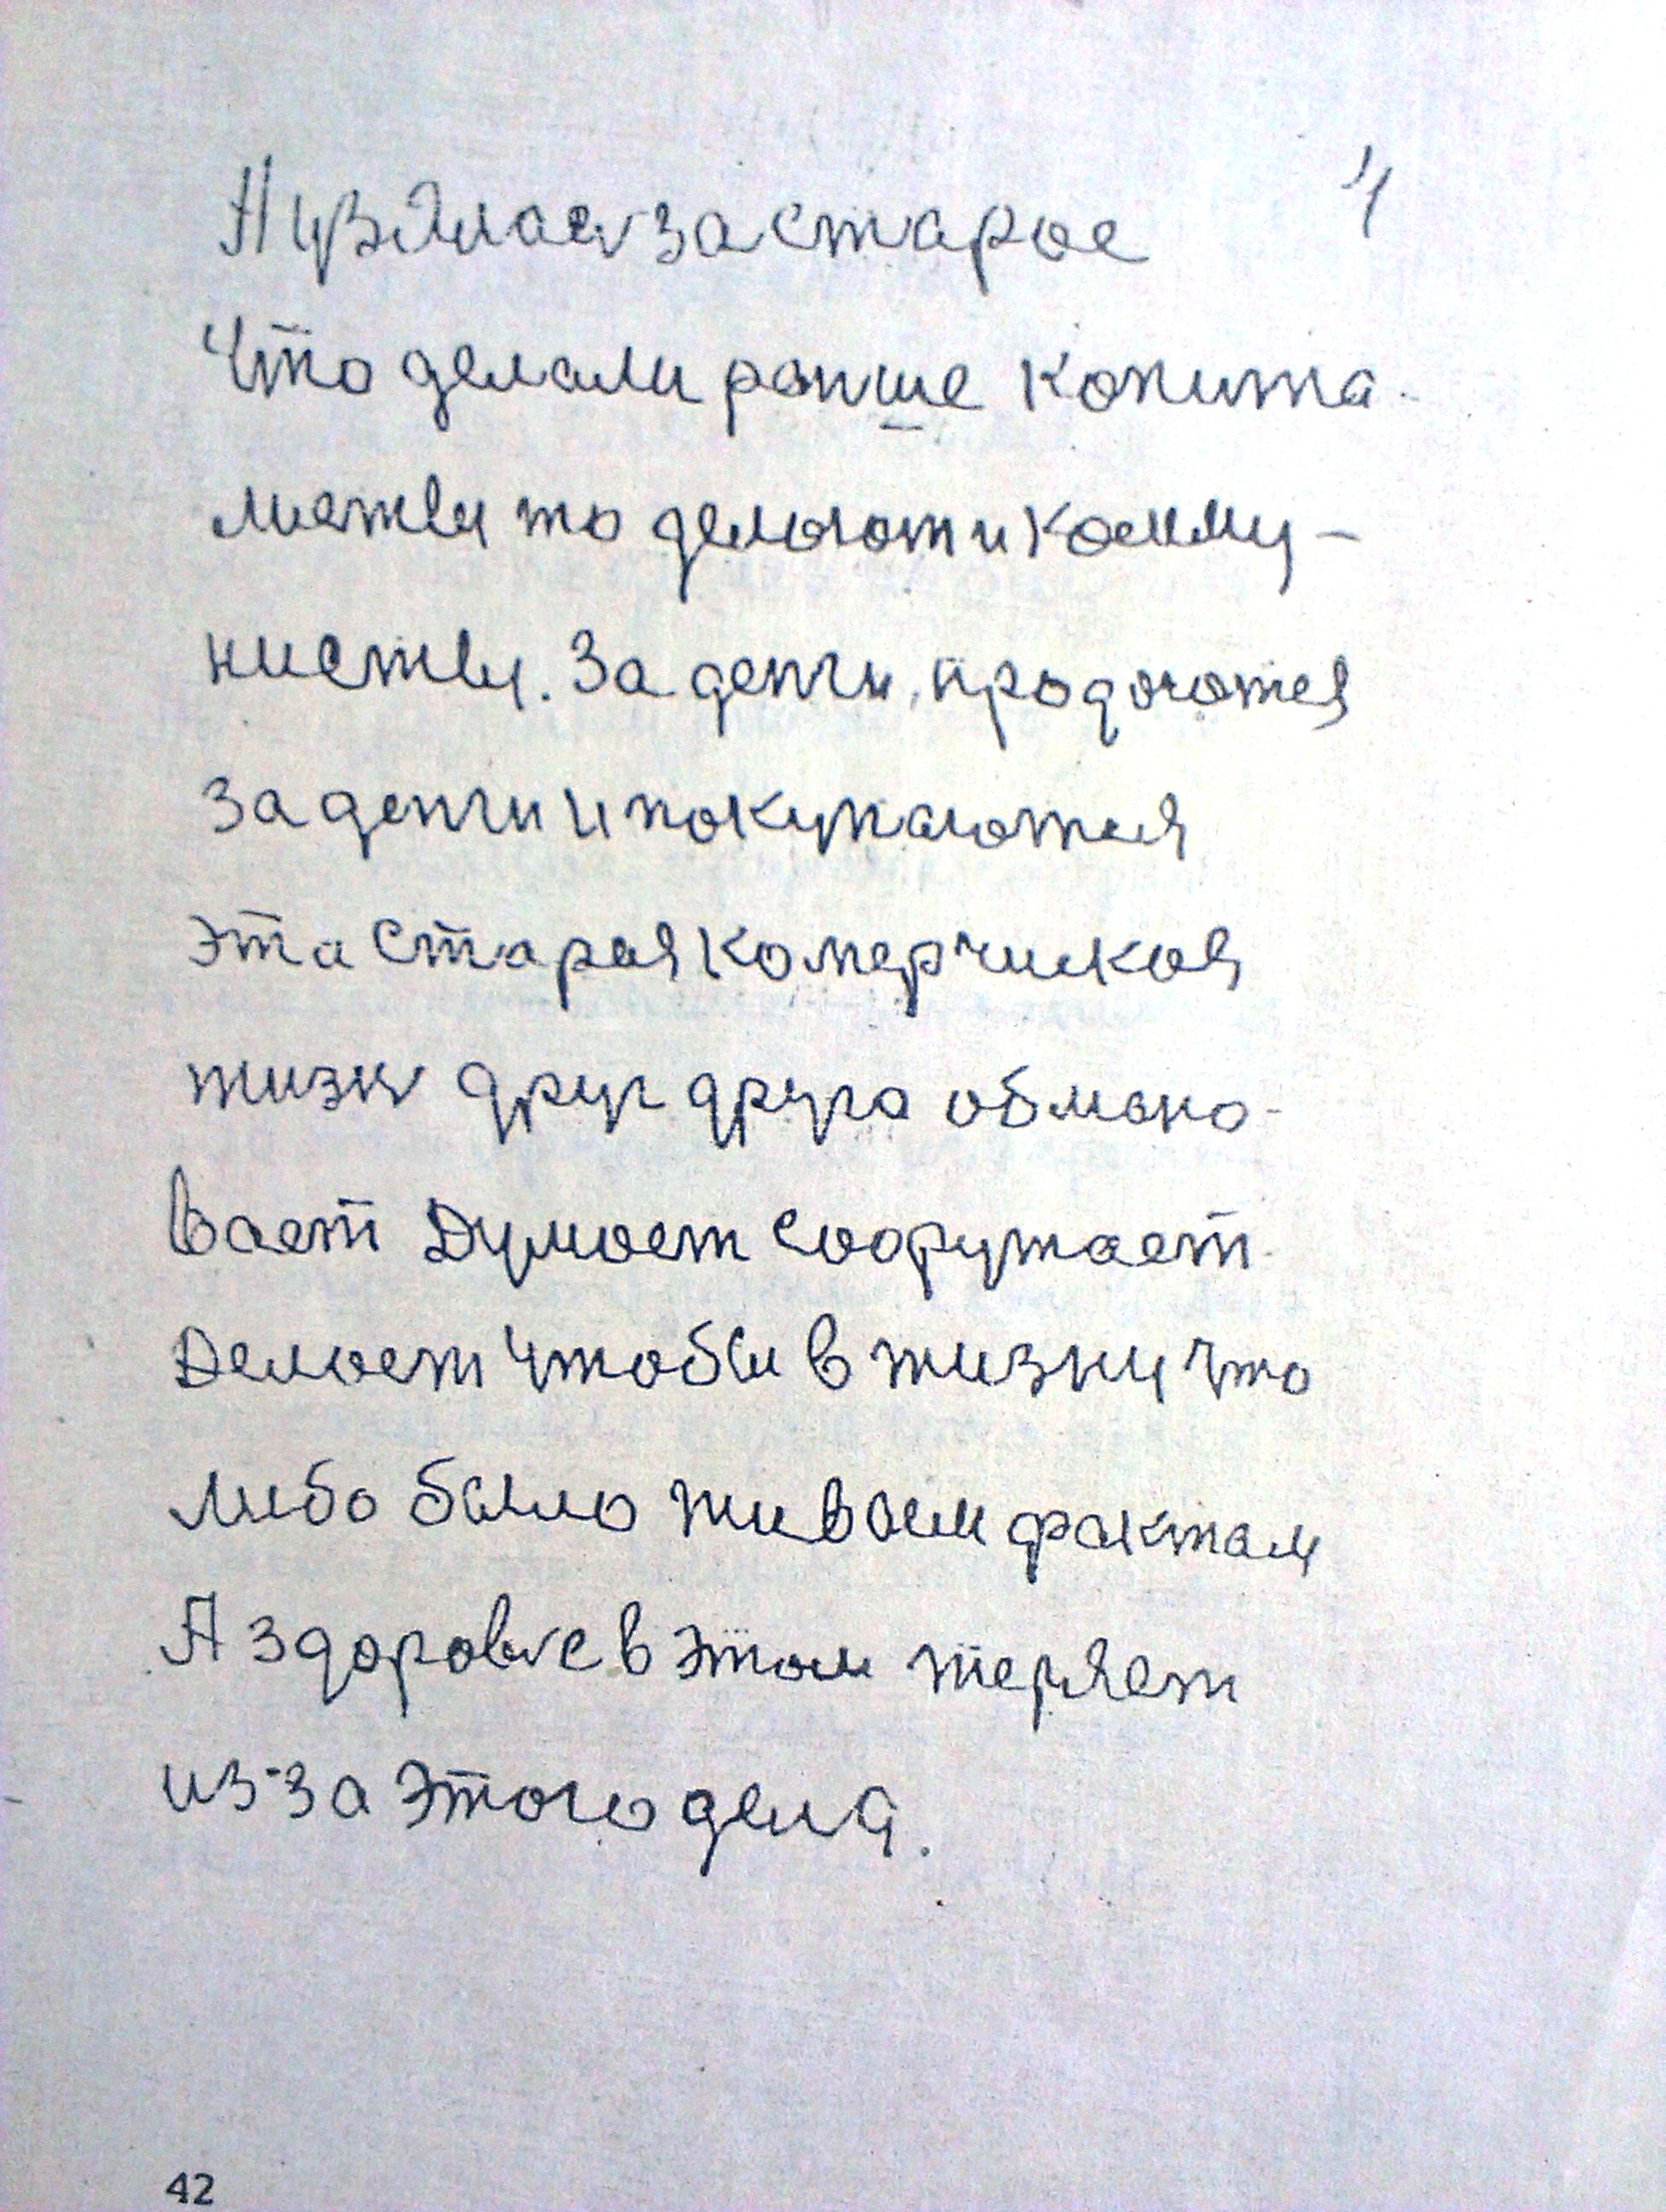 А взялась за старое 4
Что делали ранше копита-
листы то делают и комму-
нисты. За денги продаются
За денги и покупаются
Эта старая комерчиская
жизн друг друга обмано-
вает Думает сооружает
Делает чтобы в жизни что
либо было живаем фактам
А здоровье в этом теряет
из-за этого дела.
42